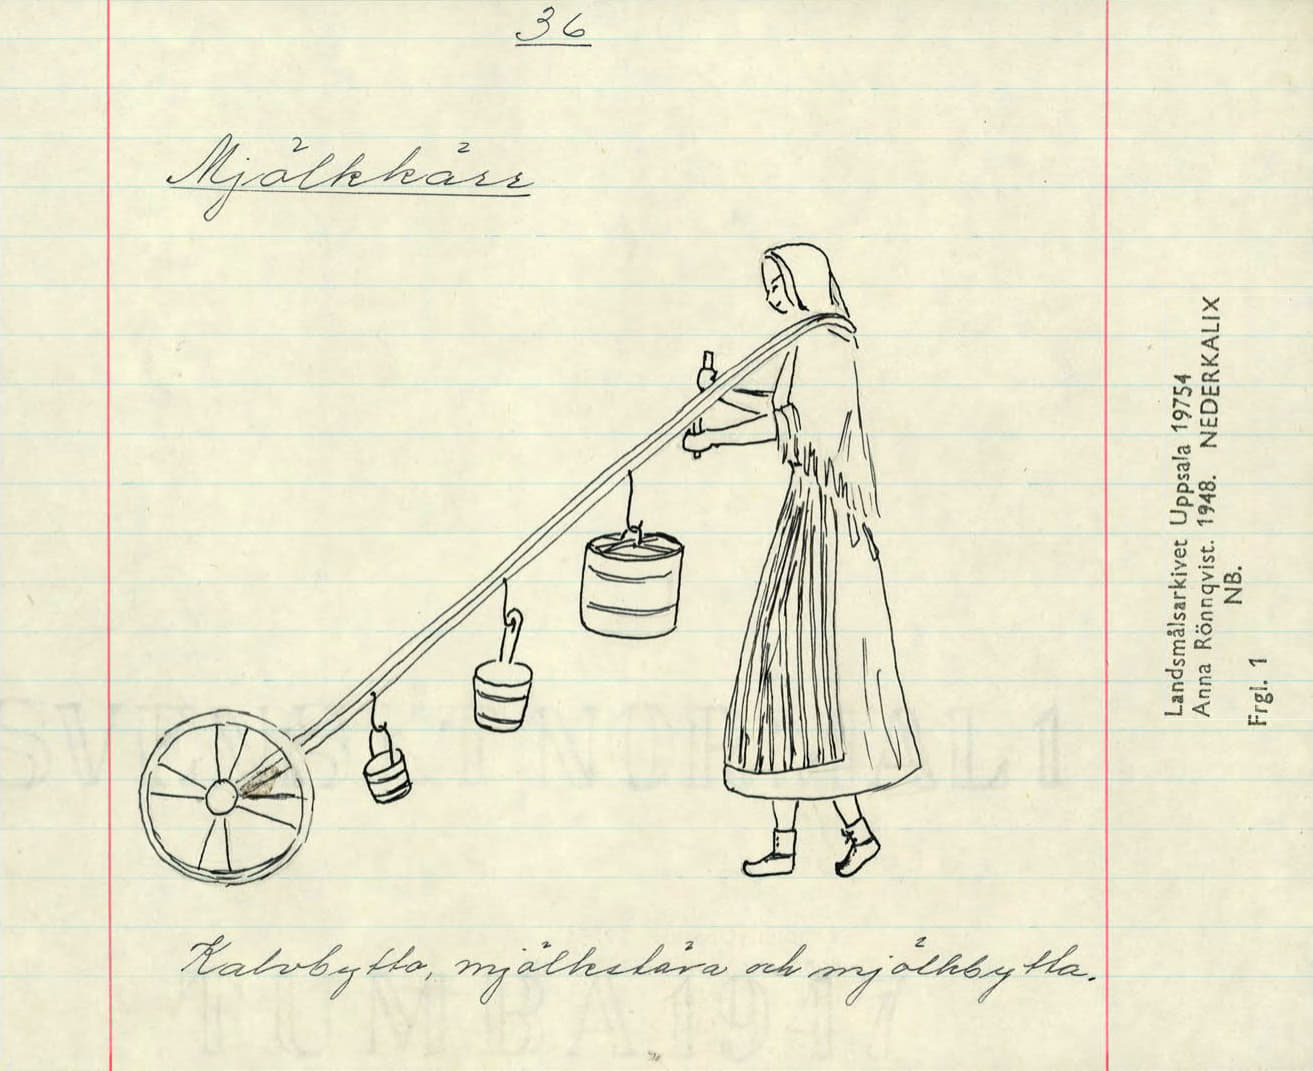 36
Mjölkkärr
Kalvbytta, mjölkstäva och mjölkbytta.
Landsmålsarkivet Uppsala 19754
Anna Rönnqvist. 1948. NEDERKALIX
NB.
Frgl. 1